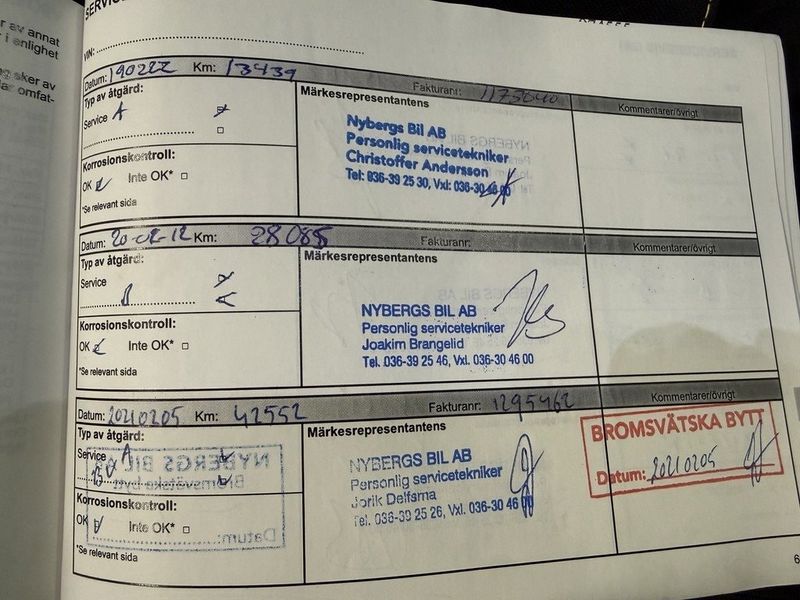 r av annat
r i enlighet
g sker av
VIN:
Datum: 190222 Km: 13439 Fakturanr: 1175040 Kommentarer/övrigt
Typ av åtgärd:
Service A
Märkesrepresentantens
Nybergs Bil AB
Personlig servicetekniker
Christoffer Andersson
Tel: 036-39 25 30, Vxl: 036-30 46 00
Korrosionskontroll:
OK Inte OK*
*Se relevant sida
Datum: 20-02-12 Km: 28085 Fakturanr: Kommentarer/övrigt
Typ av åtgärd:
Service
B
Märkesrepresentantens
NYBERGS BIL AB
Personlig servicetekniker
Joakim Brangelid
Tel. 036-39 25 46, Vxl. 036-30 46 00
Korrosionskontroll:
OK Inte OK*
*Se relevant sida
Datum: 20210205 Km: 42552 Fakturanr: 1295462 Kommentarer/övrigt
Typ av åtgärd:
Service
Märkesrepresentantens
NYBERGS BIL AB
Personlig servicetekniker
Jorik Delfsma
Tel. 036-39 25 26, Vxl. 036-30 46 00
BROMSVÄTSKA BYTT
Datum: 20210205
Korrosionskontroll:
OK Inte OK*
*Se relevant sida
6